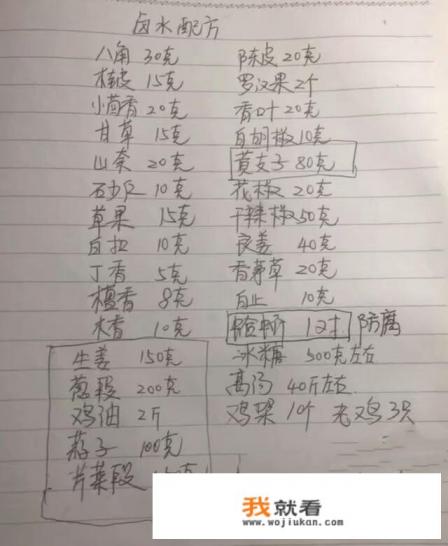 卤水配方
八角 30克 陈皮 20克
桂皮 15克 罗汉果 2个
小茴香 20克 香叶 20克
甘草 15克 白胡椒 10克
山奈 20克 黄支子 80克
石少仁 10克 花椒 20克
草果 15克 干辣椒 50克
白扣 10克 良姜 40克
丁香 5克 香茅草 20克
檀香 8克 白止 10克
木香 10克 1对 防腐
生姜 150克 冰糖 500克左右
葱段 200克 高汤 40斤左右
鸡油 2斤 鸡架 10个 老鸡 3只
茄子 100克
芹菜段
我就看
www.wojiukan.com